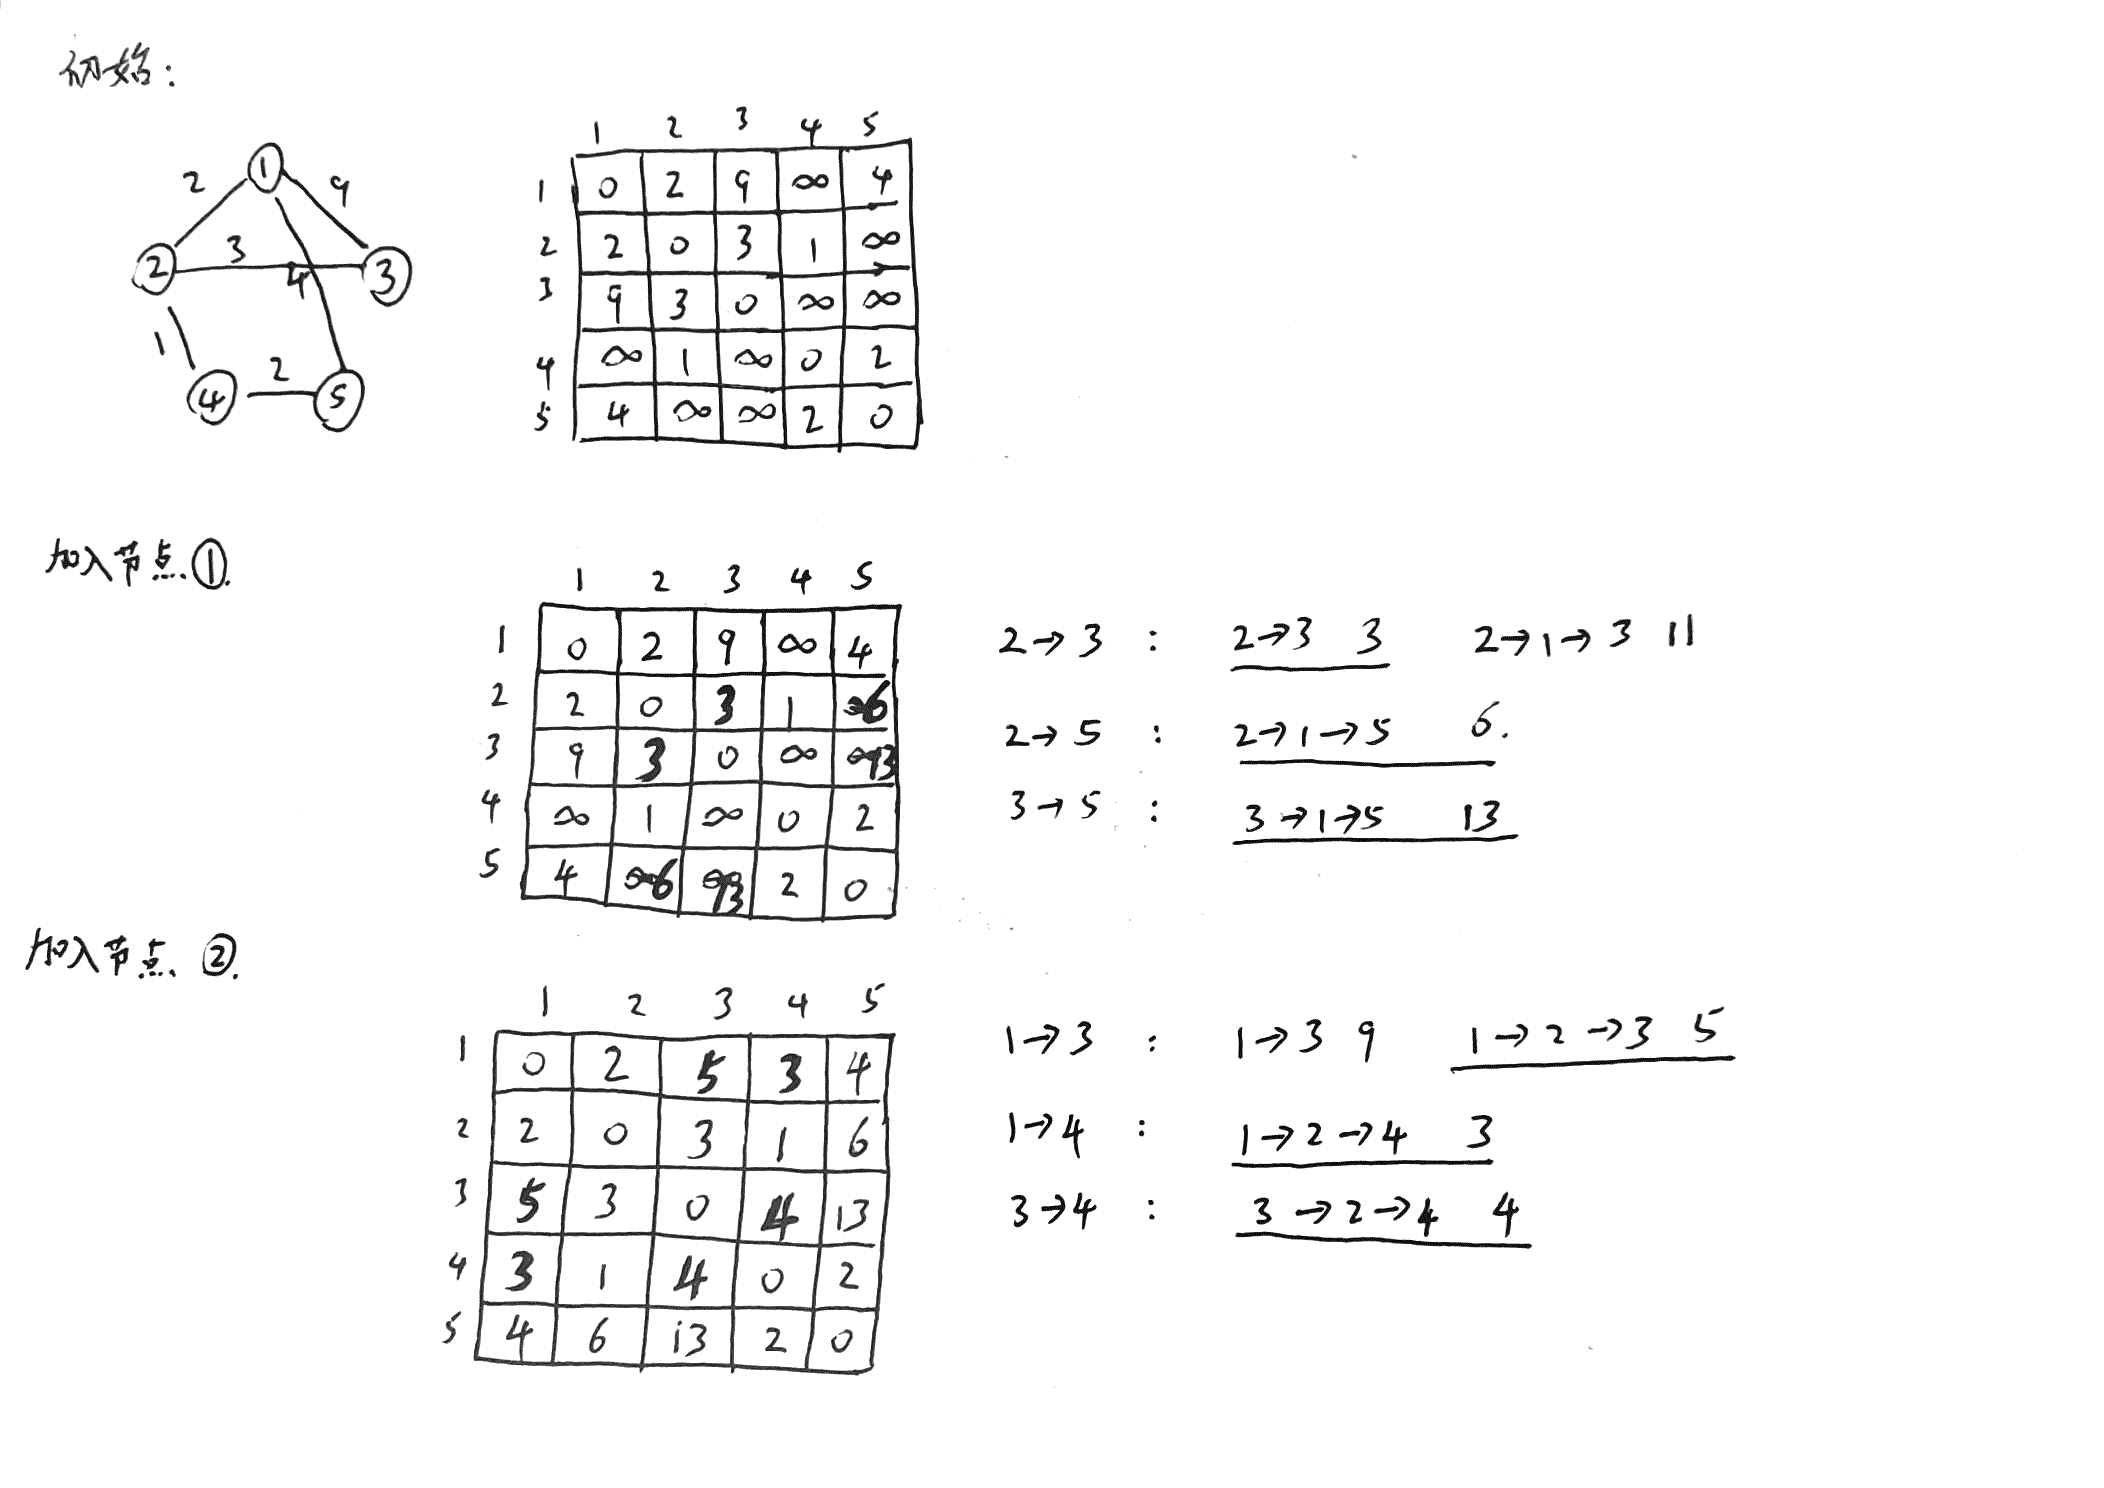 初始:
1 2 3 4 5
1 0 2 9 ∞ 4
2 2 0 3 1 ∞
3 9 3 0 ∞ ∞
4 ∞ 1 ∞ 0 2
5 4 ∞ ∞ 2 0
1
2 9
2 3 3
4
1
2
4 5
加入节点①.
1 2 3 4 5
1 0 2 9 ∞ 4
2 2 0 3 1 6
3 9 3 0 ∞ 13
4 ∞ 1 ∞ 0 2
5 4 6 13 2 0
2→3 : 2→3 3 2→1→3 11
2→5 : 2→1→5 6.
3→5 : 3→1→5 13
加入节点②.
1 2 3 4 5
1 0 2 5 3 4
2 2 0 3 1 6
3 5 3 0 4 13
4 3 1 4 0 2
5 4 6 13 2 0
1→3 : 1→3 9 1→2→3 5
1→4 : 1→2→4 3
3→4 : 3→2→4 4